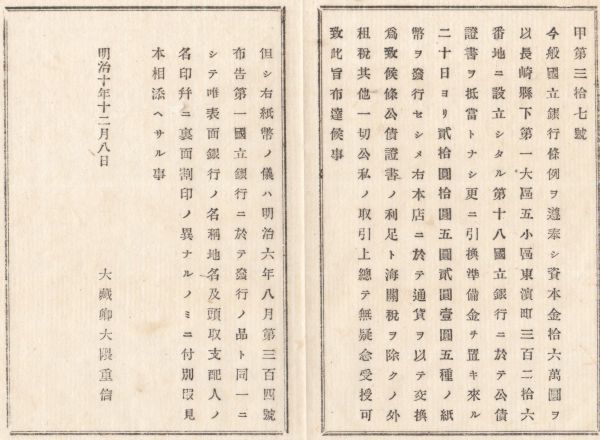 甲第三拾七號
今般國立銀行條例ヲ遵奉シ資本金拾六萬圓ヲ
以長崎縣下第一大區五小區東濵町三百二拾六
番地ニ設立シタル第十八國立銀行ニ於テ公債
證書ヲ抵當トナシ更ニ引換準備金ヲ置キ來ル
二十日ヨリ貳拾圓拾圓五圓貳圓壹圓五種ノ紙
幣ヲ發行セシメ右本店ニ於テ通貨ヲ以テ交換
爲致候條公債證書ノ利足ト海關稅ヲ除クノ外
租稅其他一切公私ノ取引上總テ無疑念受授可
致此旨布達候事
但シ右紙幣ノ儀ハ明治六年八月第三百四號
布告第一國立銀行ニ於テ發行ノ品ト同一ニ
シテ唯表面銀行ノ名稱地名及頭取支配人ノ
名印幷ニ裏面割印ノ異ナルノミニ付別段見
本相添ヘサル事
明治十年十二月八日
大藏卿大隈重信